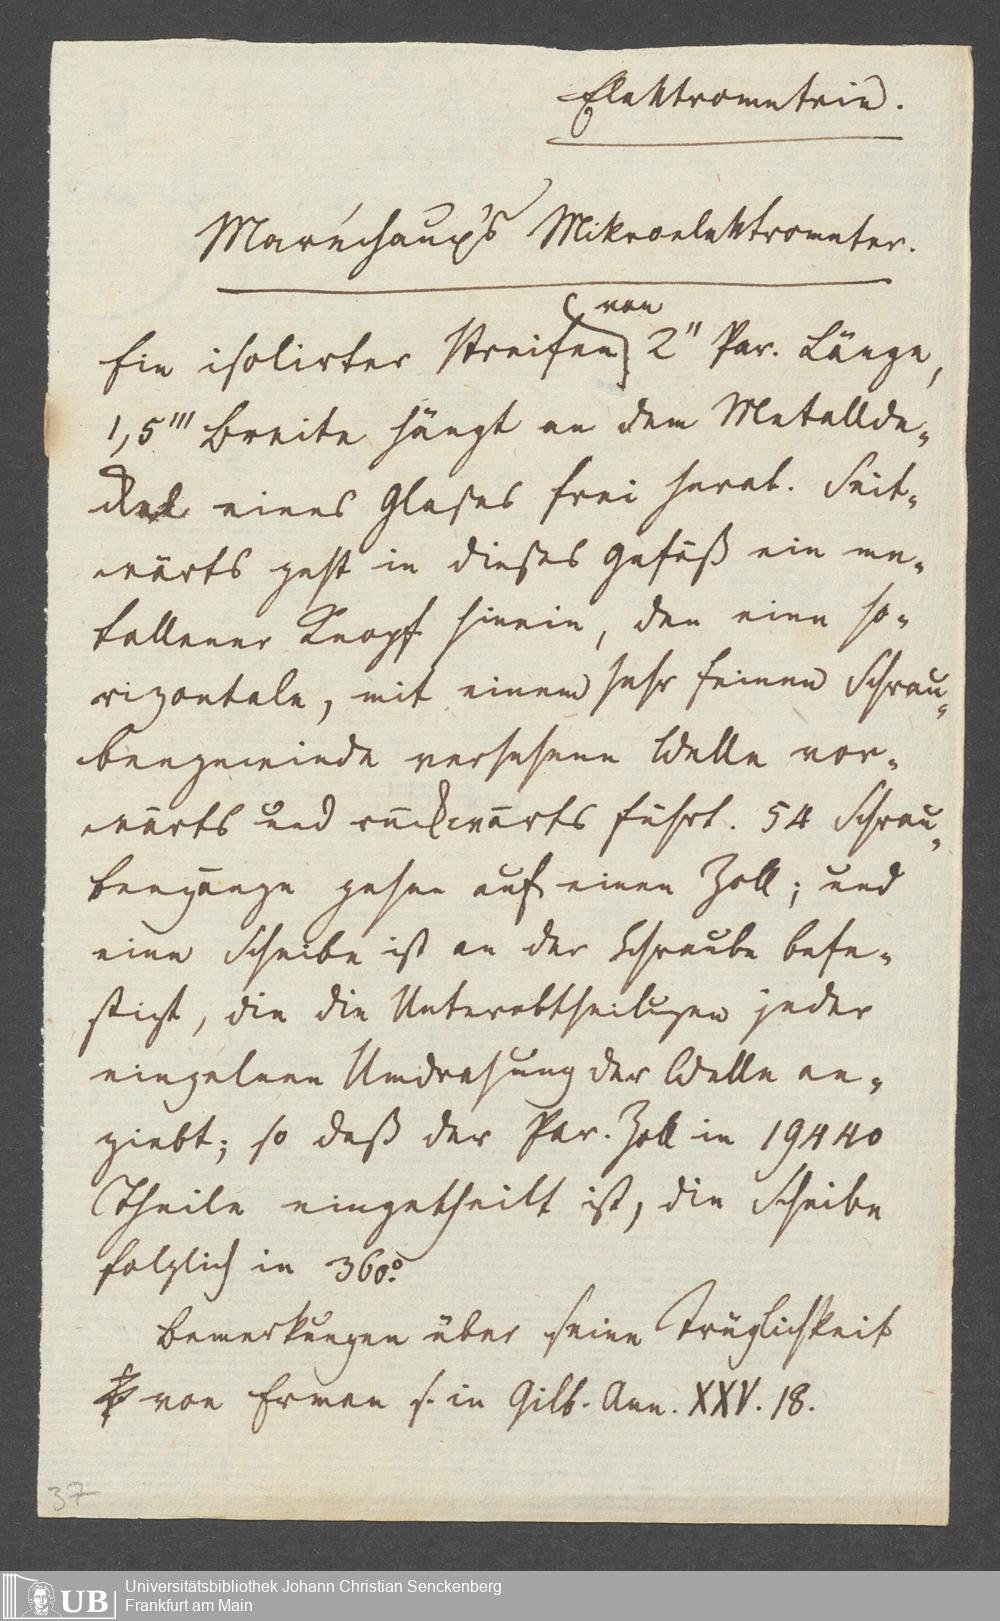 Elektrometrie.
Maréchaux's Mikroelektrometer.
von
Ein isolirter Streifen 2" Par. Länge,
1,5''' Breite hängt an dem Metallde-
ckel eines Glases frei herab. Seit-
wärts geht in dieses Gefäß ein me-
tallener Knopf hinein, den eine ho-
rizontale, mit einem sehr feinen Schrau-
bengewinde versehene Welle vor-
wärts und rückwärts führt. 54 Schrau-
bengänge gehen auf einen Zoll; und
eine Scheibe ist an der Schraube befe-
stigt, die die Unterabtheilugen jeder
einzelnen Umdrehung der Welle an-
giebt; so daß der Par. Zoll in 19440
Theile eingetheilt ist, die Scheibe
folglich in 360°.
Bemerkungen über seine Trüglichkeit
von Erman s. in Gilb. Ann. XXV. 18.
37
UB Universitätsbibliothek Johann Christian Senckenberg
Frankfurt am Main